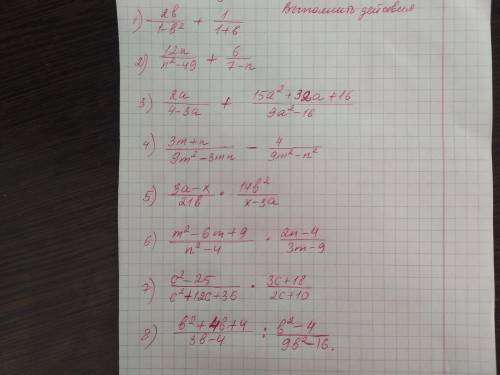 Выполнить действия
1) 2в/(1-в²) + 1/(1+в)
2) 12n/(n²-49) + 6/(7-n)
3) 2a/(4-3a) + (15a²+32a+16)/(9a²-16)
4) (3m+n)/(9m²-3mn) - 4/(9m²-n²)
5) (3a-x)/21в · 14в²/(x-3a)
6) (m²-6m+9)/(n²-4) · (2n-4)/(3m-9)
7) (c²-25)/(c²+12c+36) · (3c+18)/(2c+10)
8) (в²+4в+4)/(3в-4) : (в²-4)/(9в²-16).